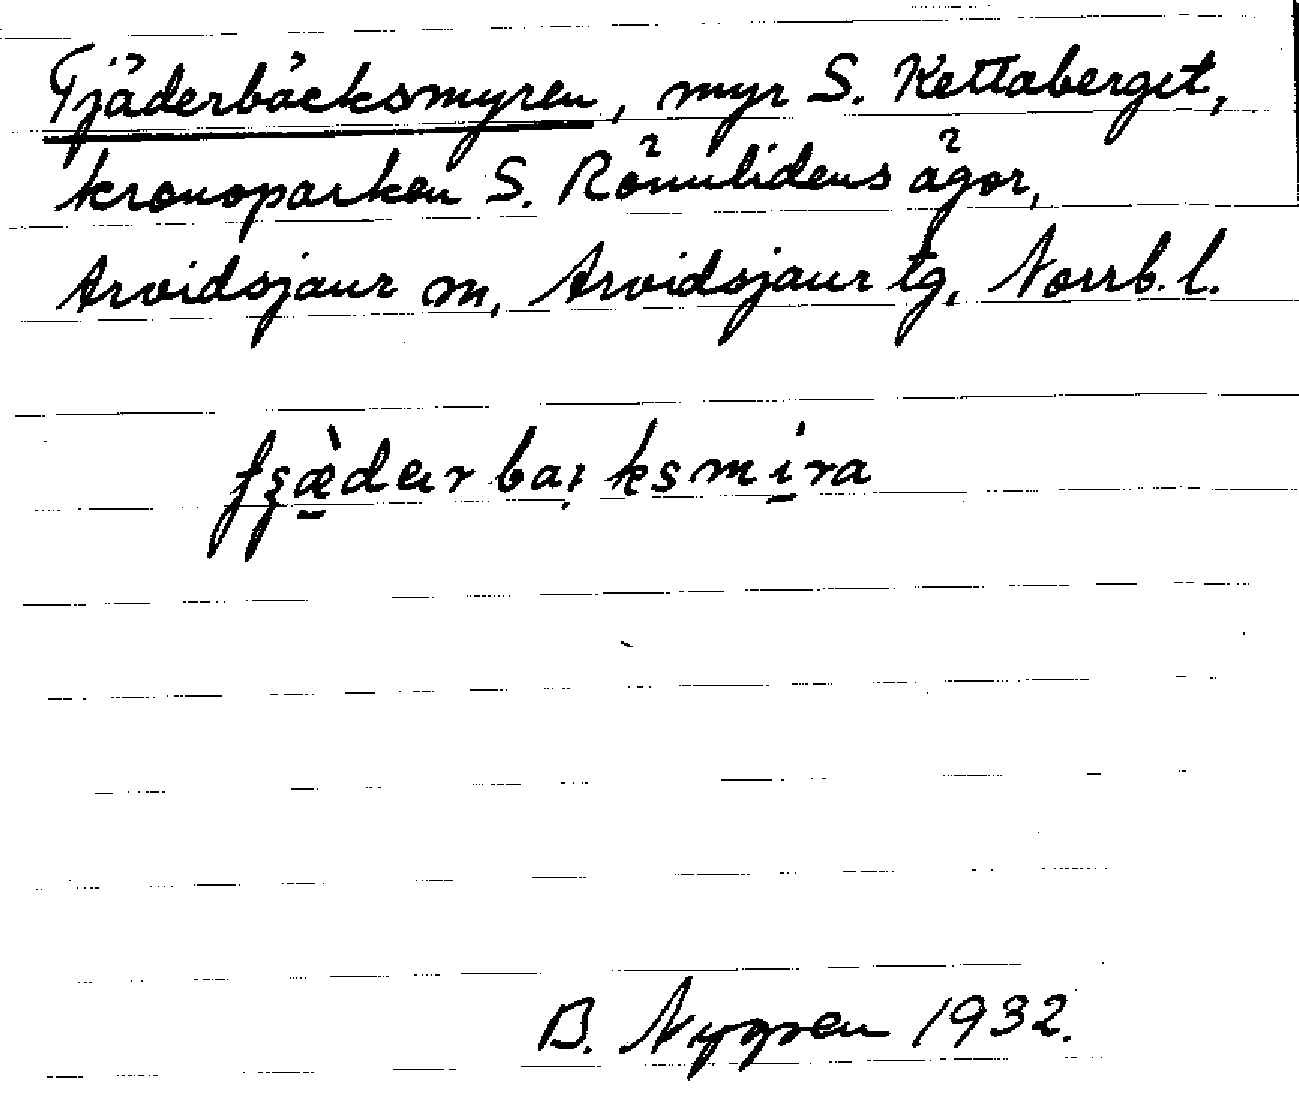 Tjäderbäcksmyren, myr S. Kettaberget,
kronoparken S. Rönnlidens ägor,
Arvidsjaur sn, Arvidsjaur tg, Norrb. l.
B. Nygren 1932.